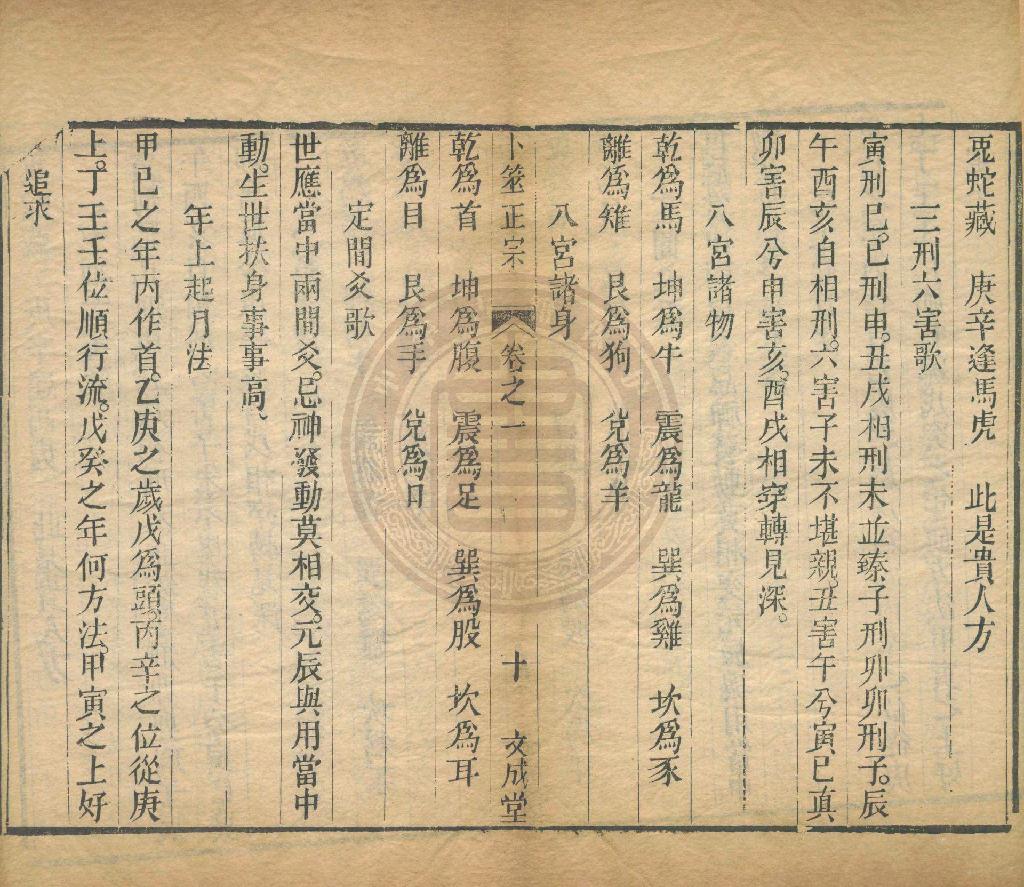 兎蛇藏　庚辛逢馬虎　此是貴人方
三刑六害歌
寅刑巳。巳刑申。丑戌相刑未並臻子刑卯卯刑子。辰
午酉亥自相刑。六害子未不堪親。丑害午兮寅巳真
卯害辰兮申害亥。酉戌相穿轉見深。
八宮諸物
乾為馬　坤為牛　震為龍　巽為雞　坎為豕
離為雉　艮為狗　兌為羊
八宮諸身
卜筮正宗　卷之一　十　文成堂
乾為首　坤為腹　震為足　巽為股　坎為耳
離為目　艮為手　兌為口
定間爻歌
世應當中兩間爻。忌神發動莫相交。元辰與用當中
動。生世扶身事事高。
年上起月法
甲己之年丙作首。乙庚之歲戊為頭。丙辛之位從庚
上。丁壬壬位順行流。戊癸之年何方法。甲寅之上好
追求